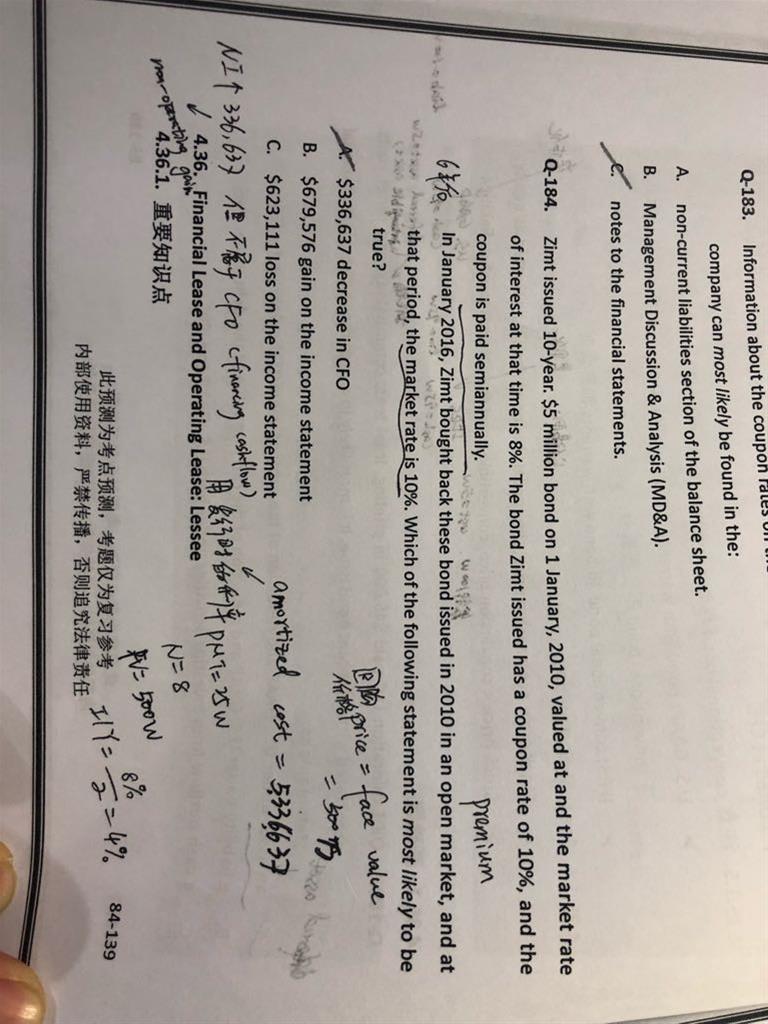 Q-183. Information about the coupon rates on
company can most likely be found in the:
A. non-current liabilities section of the balance sheet.
B. Management Discussion & Analysis (MD&A).
C. notes to the financial statements.
Q-184. Zimt issued 10-year. $5 million bond on 1 January, 2010, valued at and the market rate
of interest at that time is 8%. The bond Zimt issued has a coupon rate of 10%, and the
coupon is paid semiannually.
premium
6年后
In January 2016, Zimt bought back these bond issued in 2010 in an open market, and at
that period, the market rate is 10%. Which of the following statement is most likely to be
true?
回购价格 price = face value
= 500万
A. $336,637 decrease in CFO
B. $679,576 gain on the income statement
C. $623,111 loss on the income statement
amortized cost = 5336637
NI↑ 336,637 但不属于 CFO (financing cashflow)
用发行时的利率 PMT=25W
non-operating gain
N=8
FV=500W
I/Y= 8%/2 = 4%
4.36. Financial Lease and Operating Lease: Lessee
4.36.1. 重要知识点
此预测为考点预测，考题仅为复习参考
内部使用资料，严禁传播，否则追究法律责任
84-139